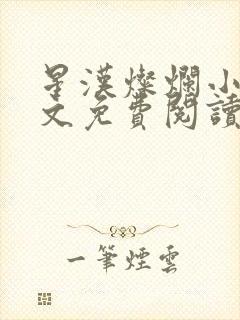 星漢燦爛小
文免費閱讀
一筆煙雲